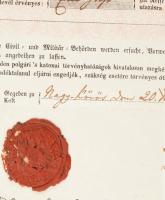 levél érvényes:
utazásra
le Civil- und Militär-Behörden werden ersucht, Vorwe
angedeihen zu lassen.
den polgári 's katonai törvényhatóságok hivatalosan megké
adálytalanul eljárni engedjék, szükség esetére törvényes öt
Gegeben zu
Kelt
Nagy Körös den 20.